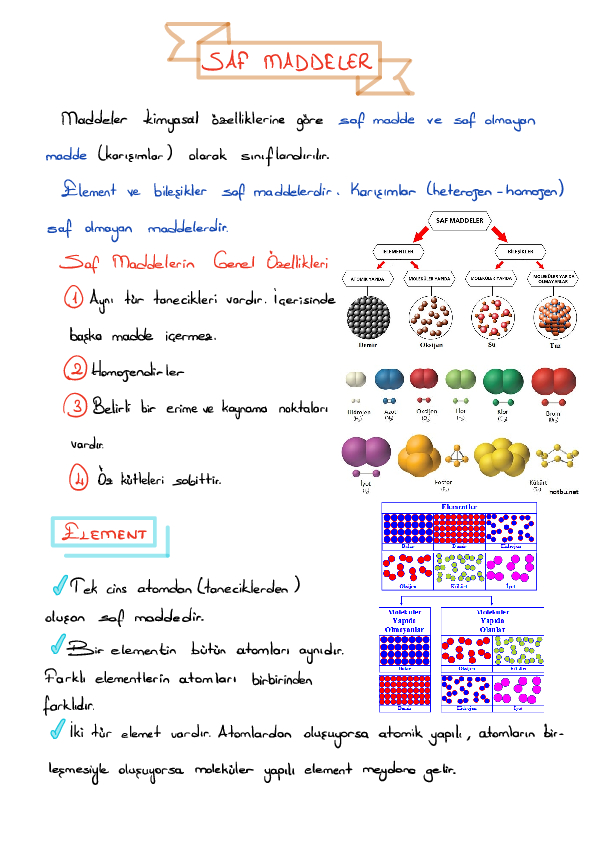 SAF MADDELER
Maddeler kimyasal özelliklerine göre saf madde ve saf olmayan
madde (karışımlar) olarak sınıflandırılır.
Element ve bileşikler saf maddelerdir. Karışımlar (heterojen-homojen)
saf olmayan maddelerdir.
Saf Maddelerin Genel Özellikleri
1 Aynı tür tanecikleri vardır. İçerisinde
başka madde içermez.
2 Homojendirler
3 Belirli bir erime ve kaynama noktaları
vardır.
4 Öz kütleleri sabittir.
SAF MADDELER
ELEMENTLER
BİLEŞİKLER
ATOMİK YAPIDA
MOLEKÜLER YAPIDA
MOLEKÜLER YAPIDA
MOLEKÜLER YAPIDA
OLMAYANLAR
Demir
Oksijen
Su
Tuz
Hidrojen
Azot
Oksijen
Flor
Klor
Brom
(H₂)
(N₂)
(O₂)
(F₂)
(Cl₂)
(Br₂)
İyot
Fosfor
Kükürt
(I₂)
(P₄)
(S₈)
notbu.net
Elementler
Bakır
Demir
Hidrojen
Oksijen
Kükürt
İyot
Moleküler
Yapıda
Olmayanlar
Moleküler
Yapıda
Olanlar
Bakır
Oksijen
Kükürt
Demir
Hidrojen
İyot
ELEMENT
Tek cins atomdan (taneciklerden)
oluşan saf maddedir.
Bir elementin bütün atomları aynıdır.
Farklı elementlerin atomları birbirinden
farklıdır.
İki tür elemet vardır. Atomlardan oluşuyorsa atomik yapılı, atomların bir-
leşmesiyle oluşuyorsa moleküler yapılı element meydana gelir.